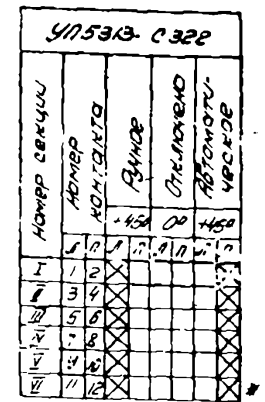 УП5313-С322
Номер секции
Номер контакта
Ручное
Отключено
Автомати-
ческое
-45° 0° +45°
Л П Л П Л П Л П
I 1 2
II 3 4
III 5 6
IV 7 8
V 9 10
VI 11 12